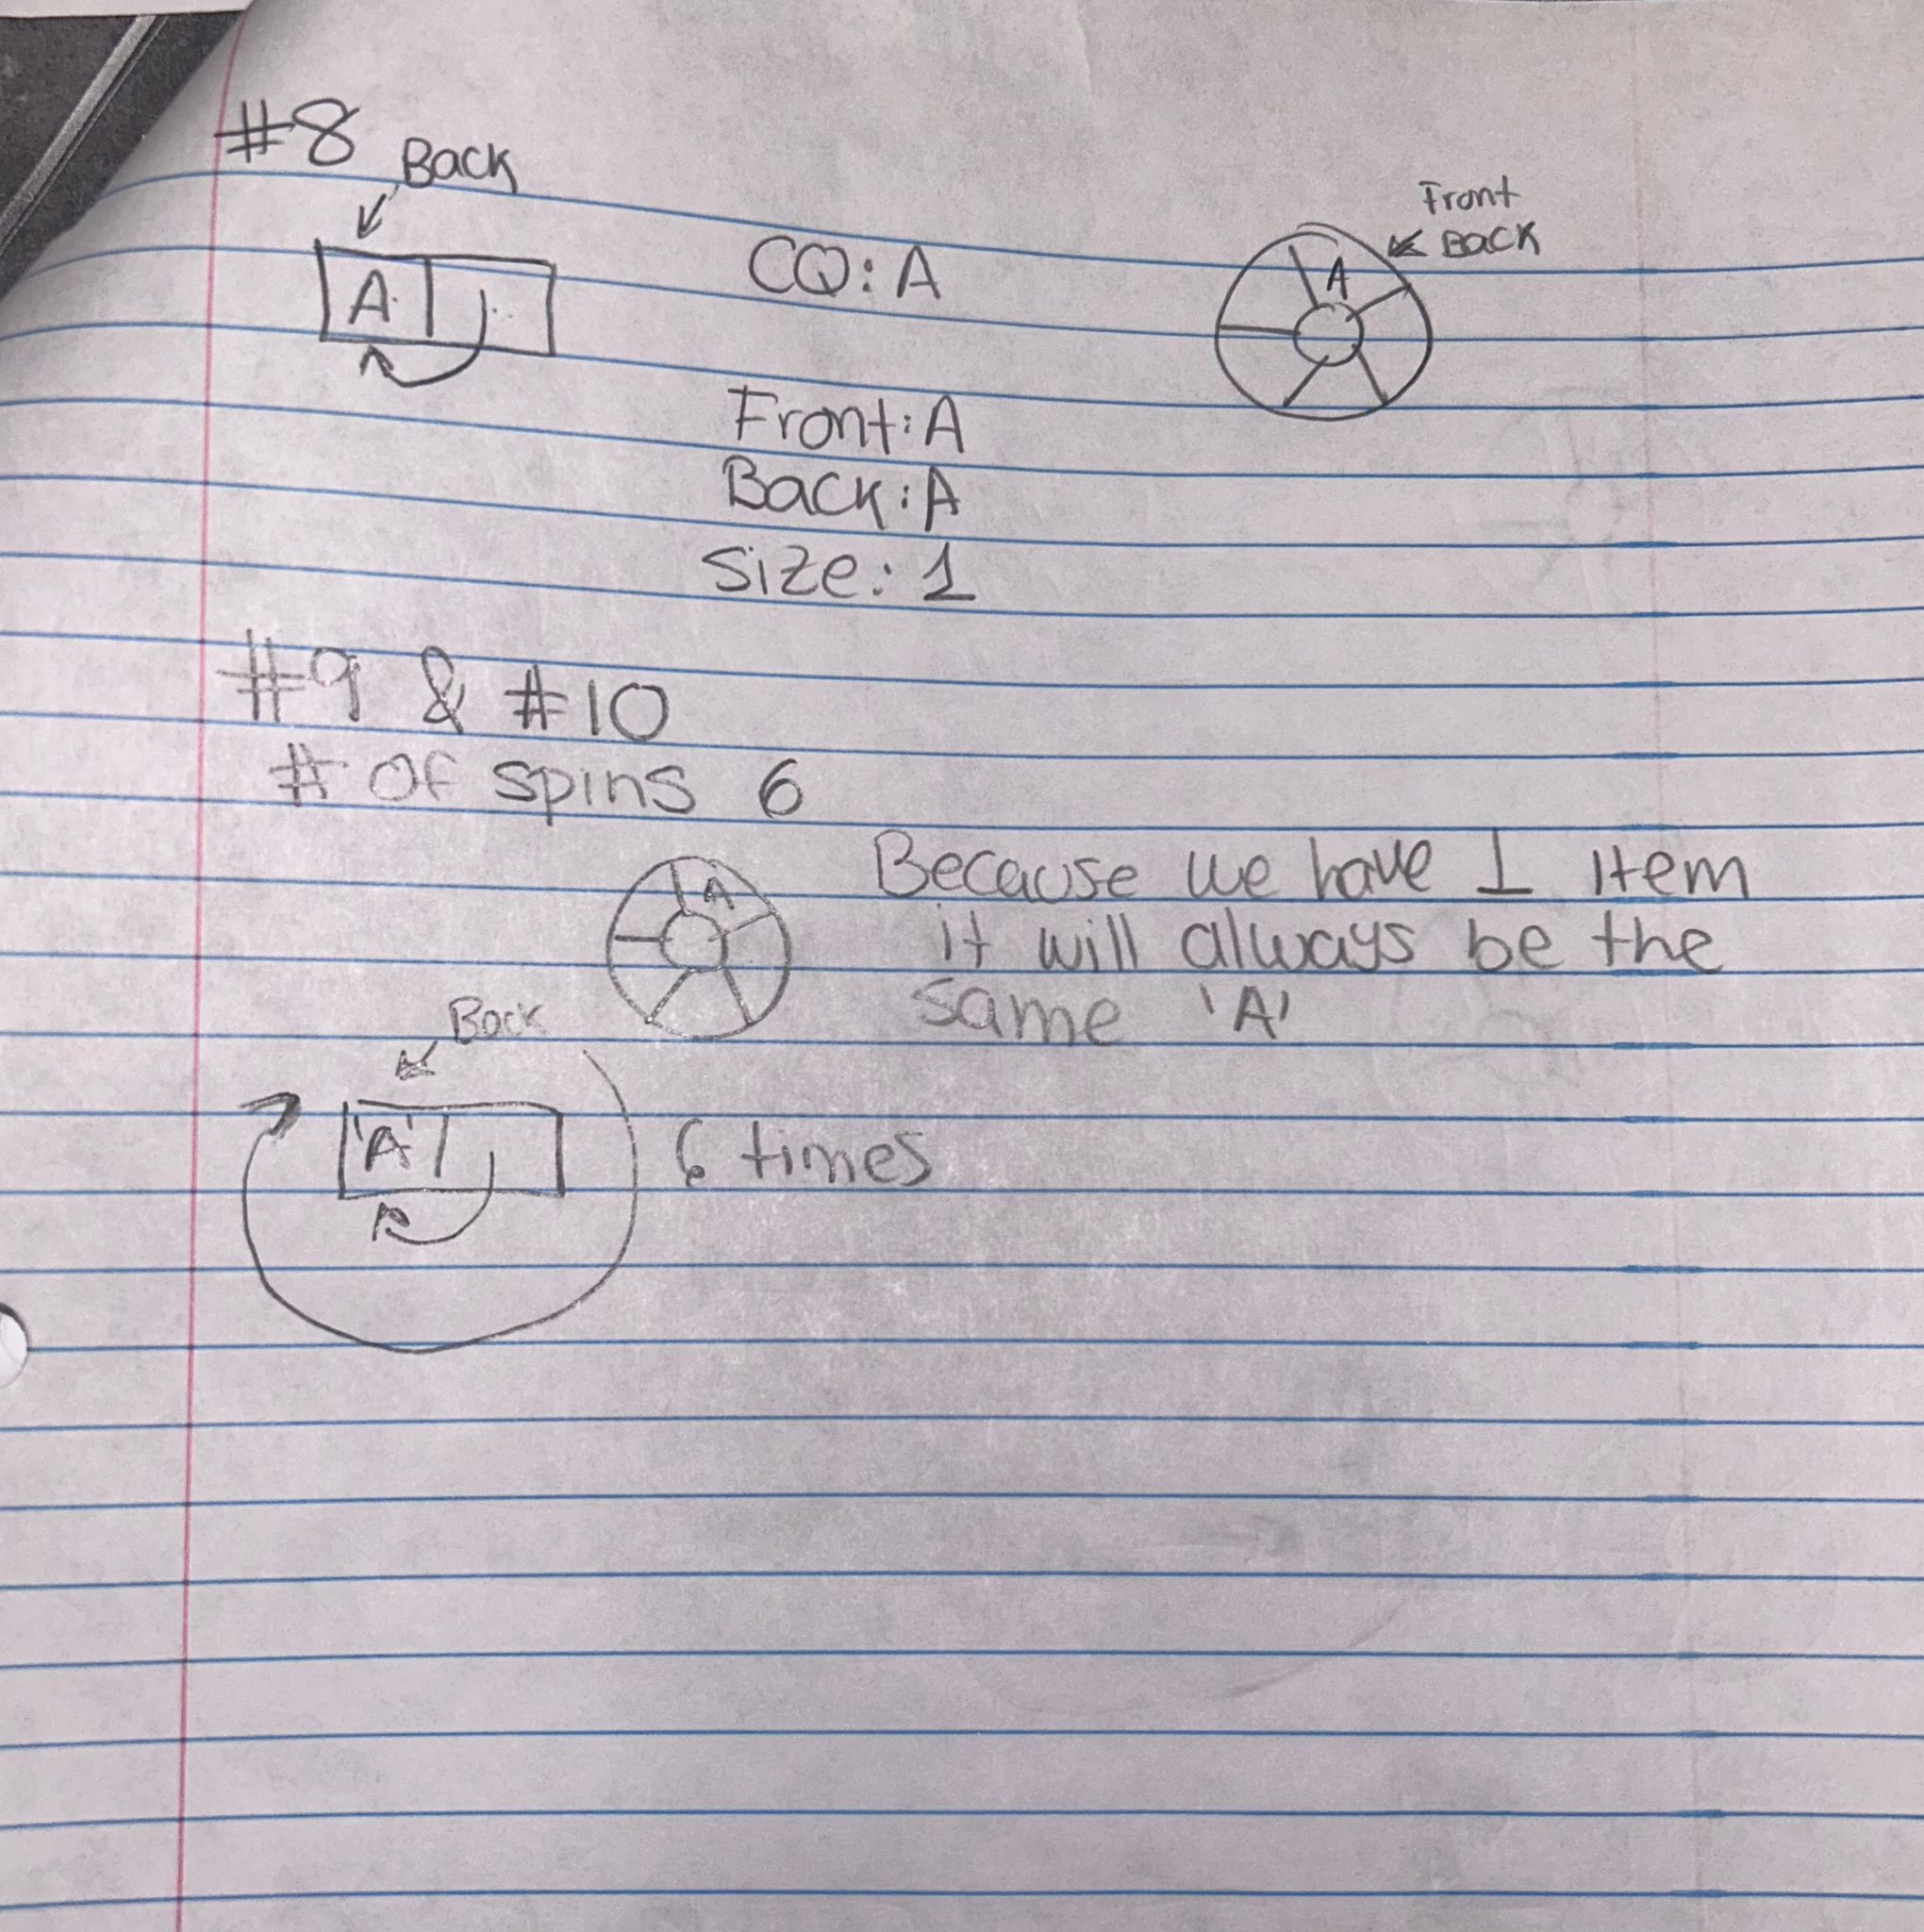 #8
Back
A
CQ: A
Front
BACK
A
Front: A
Back: A
Size: 1
#9 & #10
# of spins 6
A
Because we have 1 item
it will always be the
same 'A'
Back
'A'
6 times